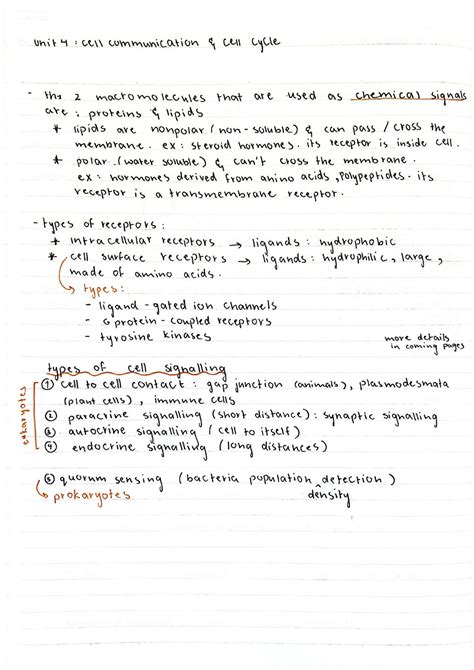 unit 4 : cell communication & cell cycle
- the 2 macromolecules that are used as chemical signals
are : proteins & lipids
* lipids are nonpolar (non-soluble) & can pass / cross the
membrane. ex: steroid hormones. its receptor is inside cell.
* polar (water soluble) & can't cross the membrane.
ex: hormones derived from amino acids, polypeptides. its
receptor is a transmembrane receptor.
- types of receptors :
* intracellular receptors → ligands : hydrophobic
* cell surface receptors → ligands : hydrophilic, large,
made of amino acids.
types :
- ligand-gated ion channels
- G protein-coupled receptors
- tyrosine kinases
more details
in coming pages
types of cell signalling
eukaryotes
① cell to cell contact : gap junction (animals), plasmodesmata
(plant cells), immune cells
② paracrine signalling (short distance) : synaptic signalling
③ autocrine signalling (cell to itself)
④ endocrine signalling (long distances)
⑤ quorum sensing (bacteria population ^ detection)
prokaryotes
density